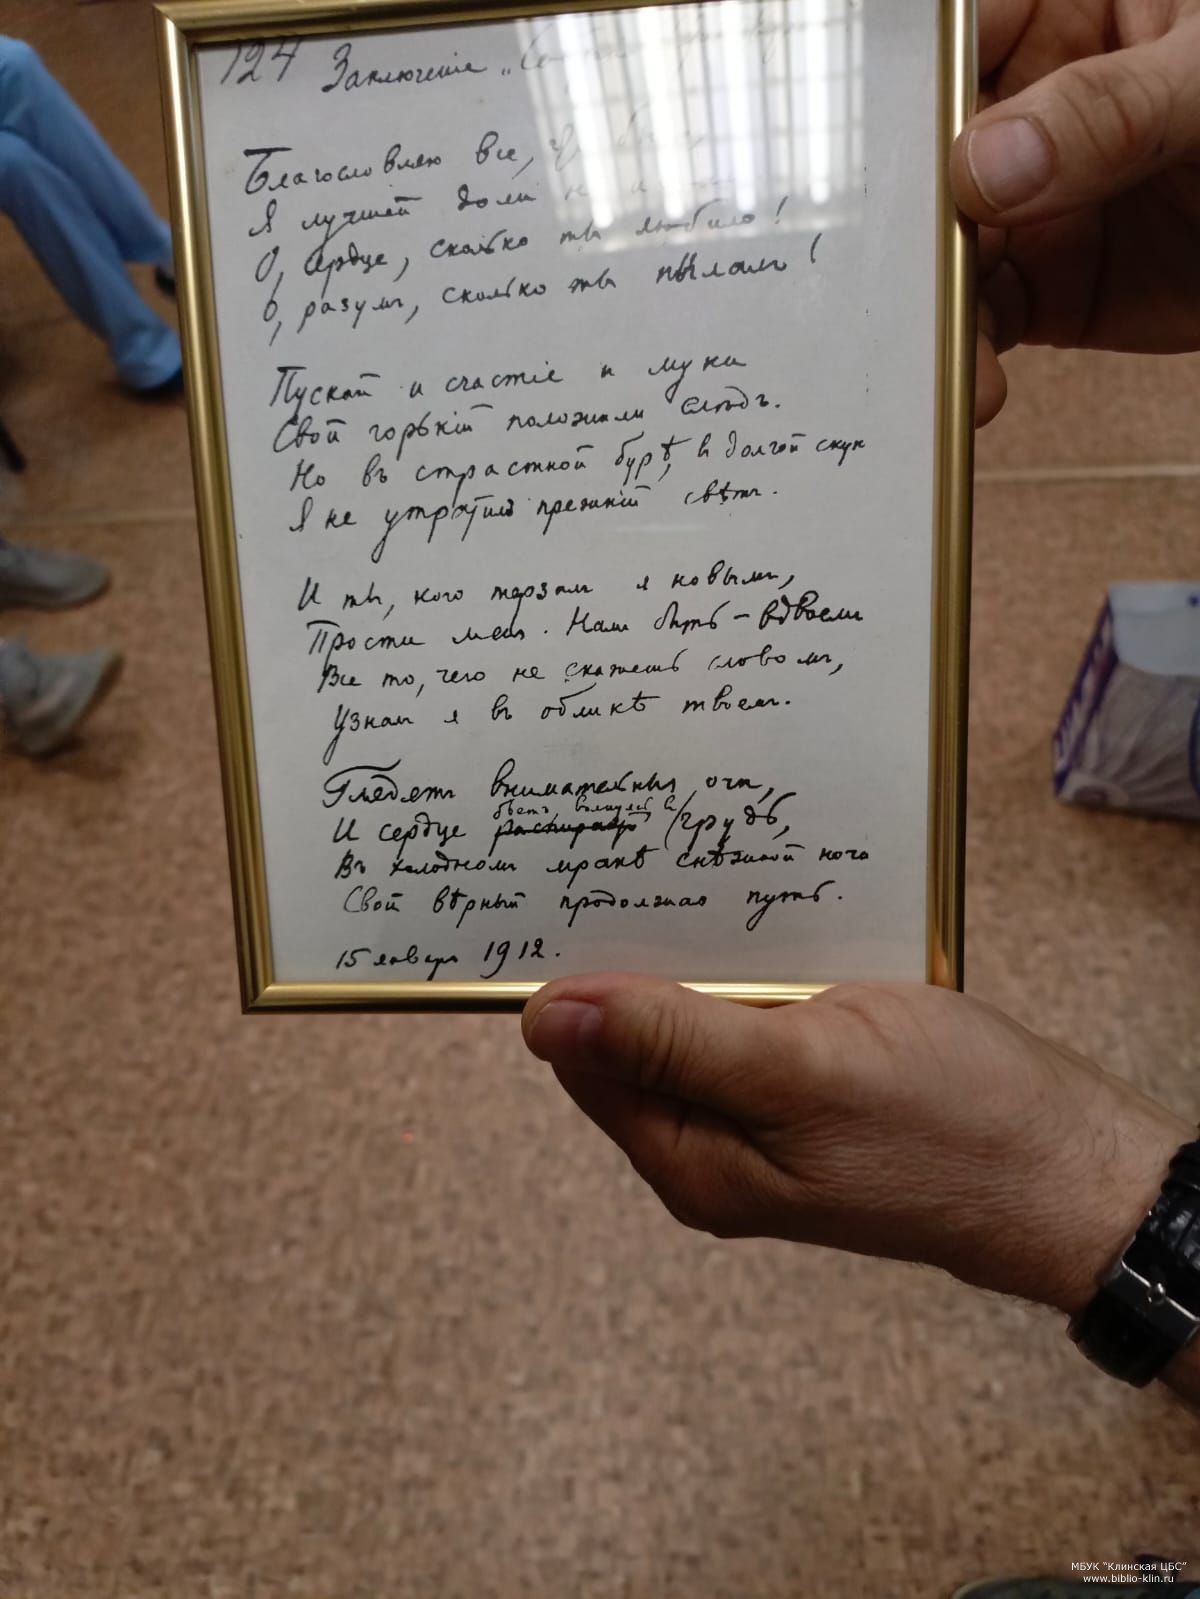 124 Заключенiе
Благословляю все,
Я лучшей доли не
О, сердце, сколько ты любило!
О, разумъ, сколько ты пылалъ!
Пускай и счастiе и муки
Свой горькiй положили слѣдъ.
Но въ страстной бурѣ, въ долгой скукѣ
Я не утратилъ прежнiй свѣтъ.
И ты, кого терзалъ я новымъ,
Прости меня. Намъ быть – вдвоемъ
Все то, чего не скажешь словомъ,
Узналъ я въ обликѣ твоемъ.
Глядятъ внимательныя очи,
И сердце бьетъ, волнуясь, въ грудь,
Въ холодномъ мракѣ снѣжной ночи
Свой вѣрный продолжая путь.
15 января 1912.
МБУК "Клинская ЦБС"
www.biblio-klin.ru